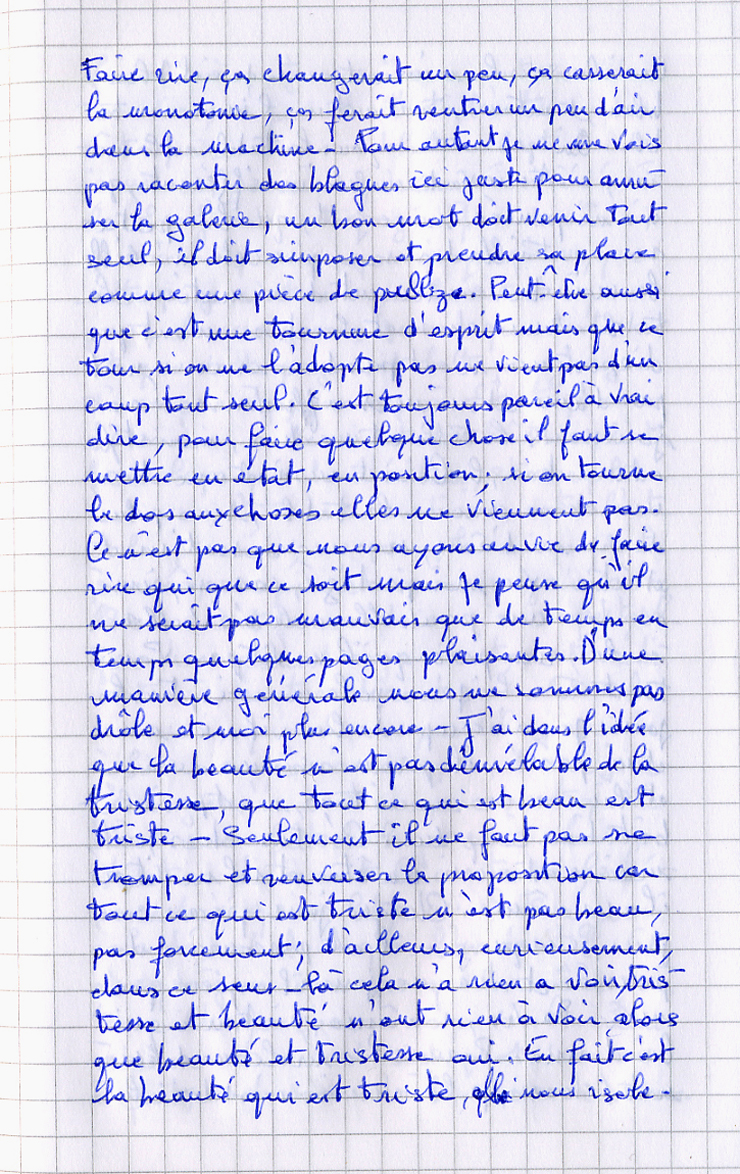 Faire rire, ça changerait un peu, ça casserait
la monotonie, ça ferait rentrer un peu d'air
dans la machine - Pour autant je ne me vois
pas raconter des blagues ici juste pour amu
ser la galerie, un bon mot doit venir tout
seul, il doit s'imposer et prendre sa place
comme une pièce de puzlze. Peut-être aussi
que c'est une tournure d'esprit mais que ce
tour si on ne l'adopte pas ne vient pas d'un
coup tout seul. C'est toujours pareil à vrai
dire, pour faire quelque chose il faut se
mettre en état, en position; si on tourne
le dos aux choses elles ne viennent pas.
Ce n'est pas que nous ayons envie de faire
rire qui que ce soit mais je pense qu'il
ne serait pas mauvais que de temps en
temps quelques pages plaisantes. D'une
manière générale nous ne sommes pas
drôle et moi plus encore - J'ai dans l'idée
que la beauté n'est pas démélable de la
tristesse, que tout ce qui est beau est
triste - Seulement il ne faut pas se
tromper et renverser la proposition car
tout ce qui est triste n'est pas beau,
pas forcement; d'ailleurs, curieusement,
dans ce sens-là cela n'a rien a voir, tris
tesse et beauté n'ont rien à voir alors
que beauté et tristesse oui. En fait c'est
la beauté qui est triste, elle nous isole.